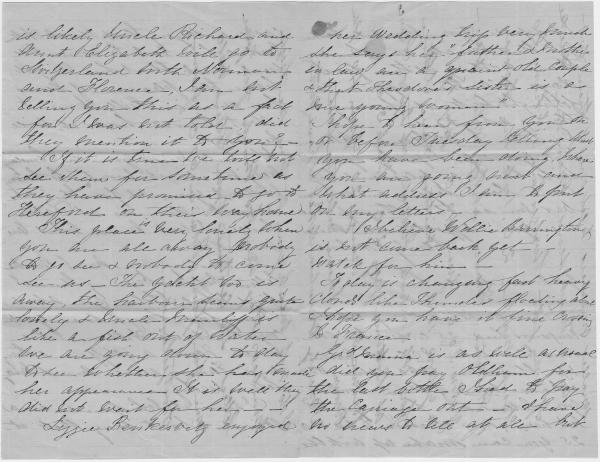 is likely Uncle Richard and
Aunt Elizabeth will go to
Switzerland with Norman
and Florence, I am not
telling you this as a fact
for I was not told, did
they mention it to you?
If it is true we will not
see them for sometime as
they have promised to go to
Hereford on their way home
This place very lonely when
you are all away Nobody
to go see & nobody to come
see us - The Yacht too is
away The harbour seems quite
lonely & Uncle is
like a fish out of water
We are going down to day
to see whether she has made
her appearance It is well they
did not went for her -
Lizzie enjoyed
her Wedding trip very much
she says her "father & mother
in law are a quaint old couple
& that Theodore's sister is a
nice young woman"
I hope to hear from you on
or before Tuesday telling what
you have been doing, where
you are going next and
what address I am to put
on my letters -
I believe Willie
is not come back yet
watch for him -
To day is changing fast heavy
clouds like Thunder floating
hope you have it fine crossing
to France
is as well as usual
did you pay Oldham for
the last bottle I had to pay
the Carriage out - I have
no news to tell at all but